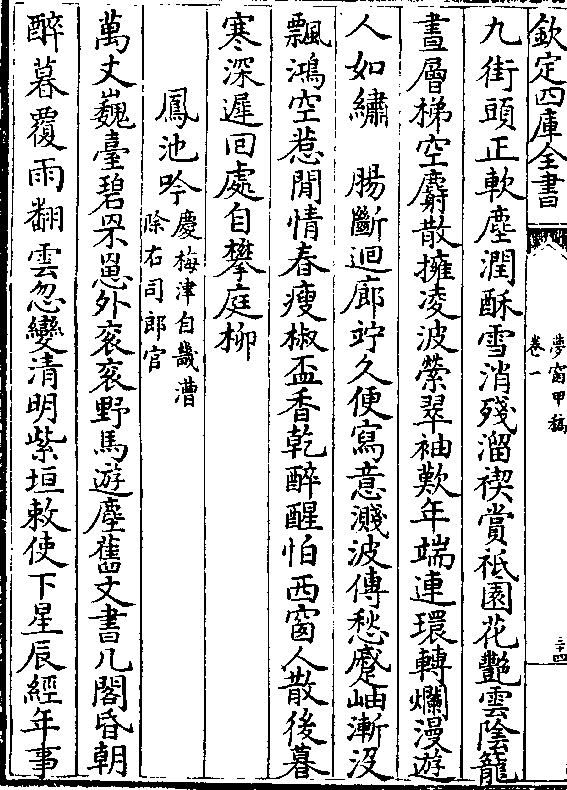 欽定四庫全書
夢窗甲稿
卷一
三四
九街頭正軟塵潤酥雪消殘溜禊賞祇園花豔雲陰籠
晝層梯空麝散擁凌波縈翠袖歎年端連環轉爛漫遊
人如繡　腸斷迴廊竚久便寫意濺波傳愁蹙岫漸沒
飄鴻空惹閒情春瘦椒盃香乾醉醒怕西窗人散後暮
寒深遲回處自攀庭柳
鳳池吟慶梅津自畿漕
除右司郎官
萬丈巍臺碧罘罳外衮衮野馬遊塵舊文書几閣昏朝
醉暮覆雨翻雲忽變清明紫垣敕使下星辰經年事